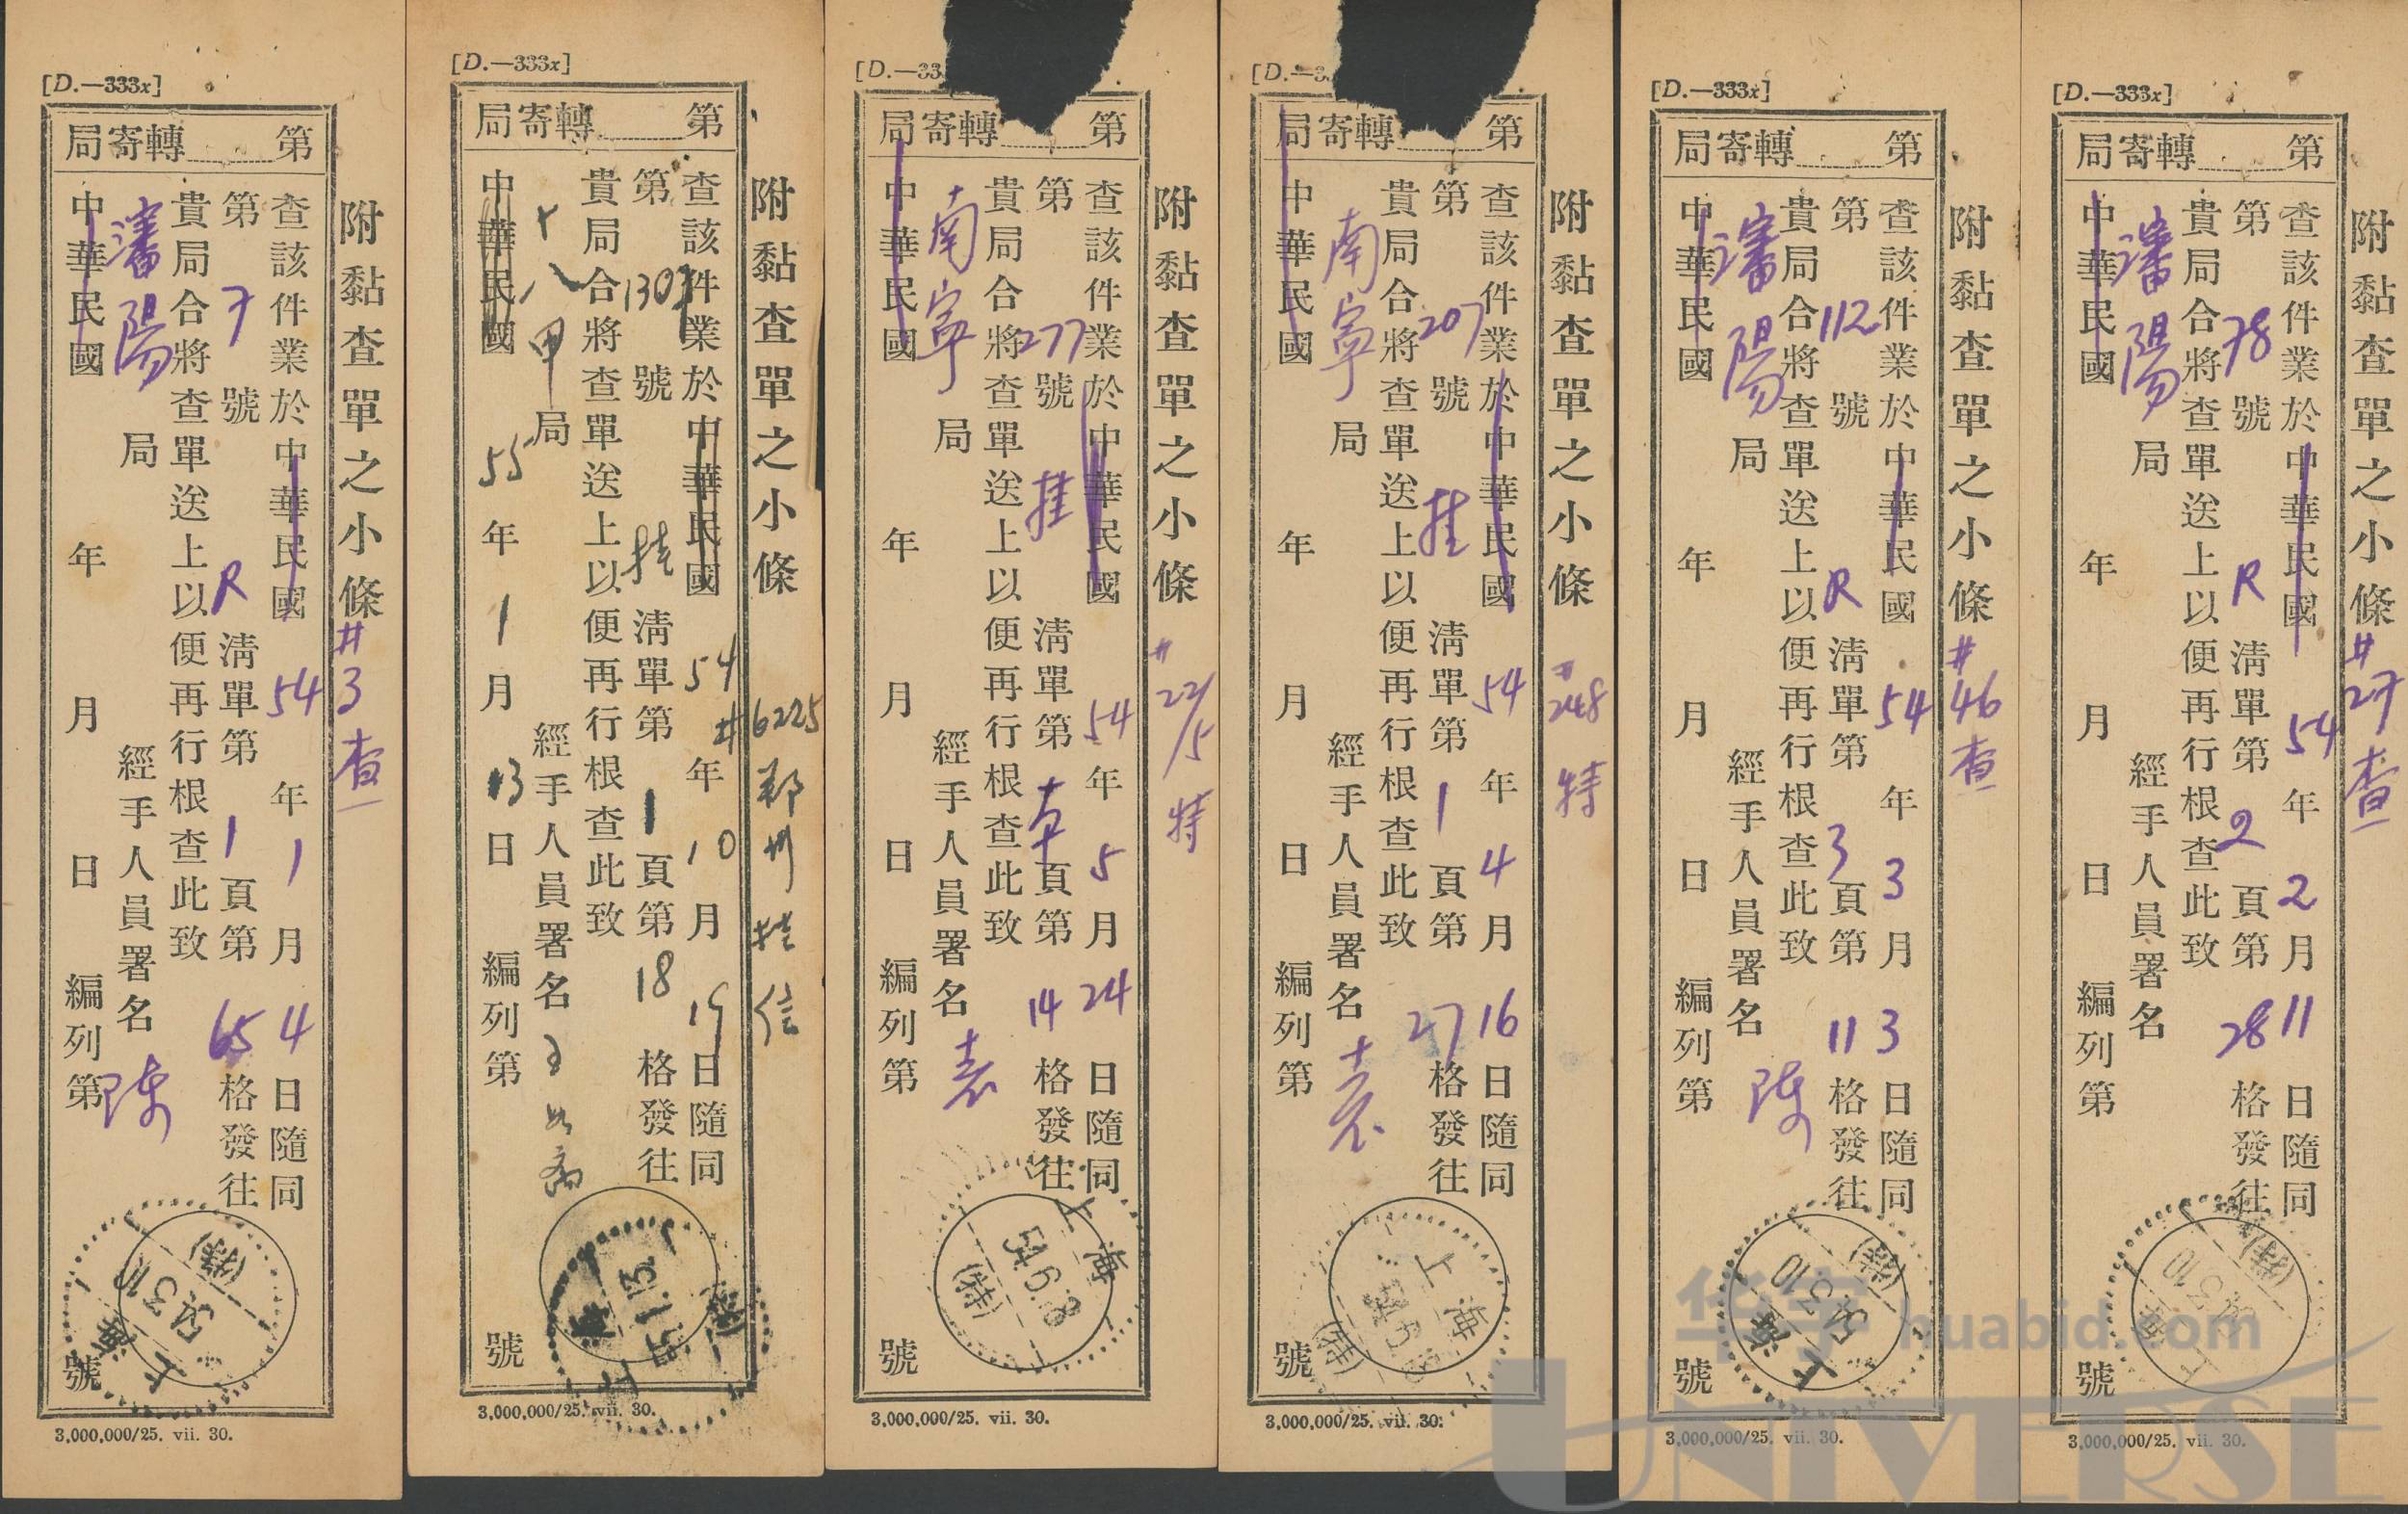 [D.—333x]
第 轉寄局
附黏查單之小條 #3 查
查該件業於中華民國 54 年 1 月 4 日隨同
第 7 號 R 清單第 1 頁第 65 格發往
貴局合將查單送上以便再行根查此致
瀋陽 局 經手人員署名 陈
中華民國 年 月 日 編列第 號
上海 54.3.10 (特)
3,000,000/25. vii. 30.
[D.—333x]
第 轉寄局
附黏查單之小條 #6225 鄭州挂信
查該件業於中華民國 54 年 10 月 19 日隨同
第 1307 號 挂 清單第 1 頁第 18 格發往
貴局合將查單送上以便再行根查此致
局 經手人員署名
中華民國 55 年 1 月 13 日 編列第 號
上海 55.1.13.
3,000,000/25. vii. 30.
[D.—33
第 轉寄局
附黏查單之小條 # 22/5 特
查該件業於中華民國 54 年 5 月 24 日隨同
第 277 號 挂 清單第 本 頁第 14 格發往
貴局合將查單送上以便再行根查此致
南寧 局 經手人員署名 袁
中華民國 年 月 日 編列第 號
上海 54.6.8 (特)
3,000,000/25. vii. 30.
[D.—3
第 轉寄局
附黏查單之小條 #248 特
查該件業於中華民國 54 年 4 月 16 日隨同
第 207 號 挂 清單第 1 頁第 27 格發往
貴局合將查單送上以便再行根查此致
南寧 局 經手人員署名 袁
中華民國 年 月 日 編列第 號
上海 (特)
3,000,000/25. vii. 30.
[D.—333x]
第 轉寄局
附黏查單之小條 #46 查
查該件業於中華民國 54 年 3 月 3 日隨同
第 112 號 R 清單第 3 頁第 11 格發往
貴局合將查單送上以便再行根查此致
瀋陽 局 經手人員署名 陈
中華民國 年 月 日 編列第 號
上海 54.3.10 (特)
3,000,000/25. vii. 30.
[D.—333x]
第 轉寄局
附黏查單之小條 #27 查
查該件業於中華民國 54 年 2 月 11 日隨同
第 78 號 R 清單第 2 頁第 28 格發往
貴局合將查單送上以便再行根查此致
瀋陽 局 經手人員署名
中華民國 年 月 日 編列第 號
上海 54.3.10 (特)
3,000,000/25. vii. 30.
华宇 huabid.com
UNIVERSE